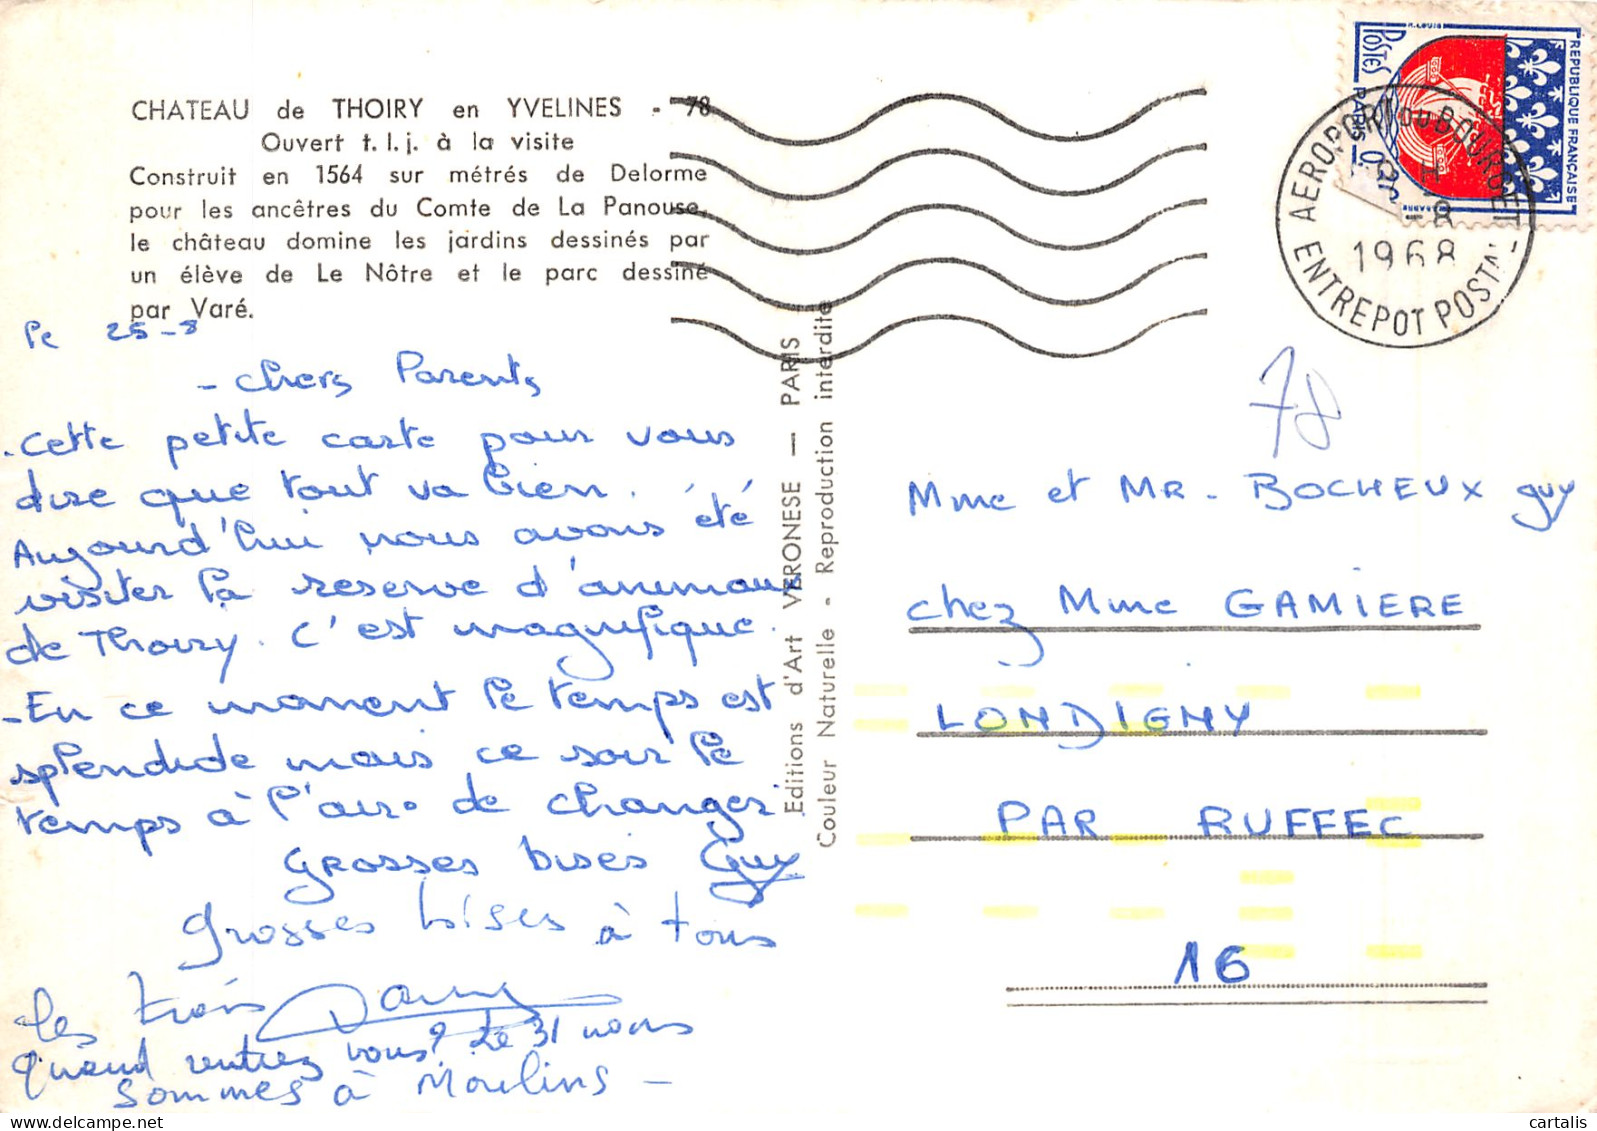 CHATEAU de THOIRY en YVELINES - 78
Ouvert t. l. j. à la visite
Construit en 1564 sur métrés de Delorme
pour les ancêtres du Comte de La Panouse,
le château domine les jardins dessinés par
un élève de Le Nôtre et le parc dessiné
par Varé.
Le 25-8
- Chers Parents
- Cette petite carte pour vous
dire que tout va bien.
Aujourd'hui nous avons été
visiter la reserve d'animaux
de Thoiry. C'est magnifique.
- En ce moment le temps est
splendide mais ce soir le
temps à l'air de changer
GROSSES bises Guy
Grosses bises à tous
les trois Dany
Quand rentrez vous? Le 31 nous
sommes à Moulins -
Editions d'Art VERONESE — PARIS
Couleur Naturelle - Reproduction interdite
REPUBLIQUE FRANÇAISE
POSTES
PARIS
AEROPORT DU BOURGET
ENTREPOT POSTAL
-8
1968
78
Mme et MR. BOCHEUX guy
chez Mme GAMIERE
LONDIGNY
PAR RUFFEC
16
cartalis